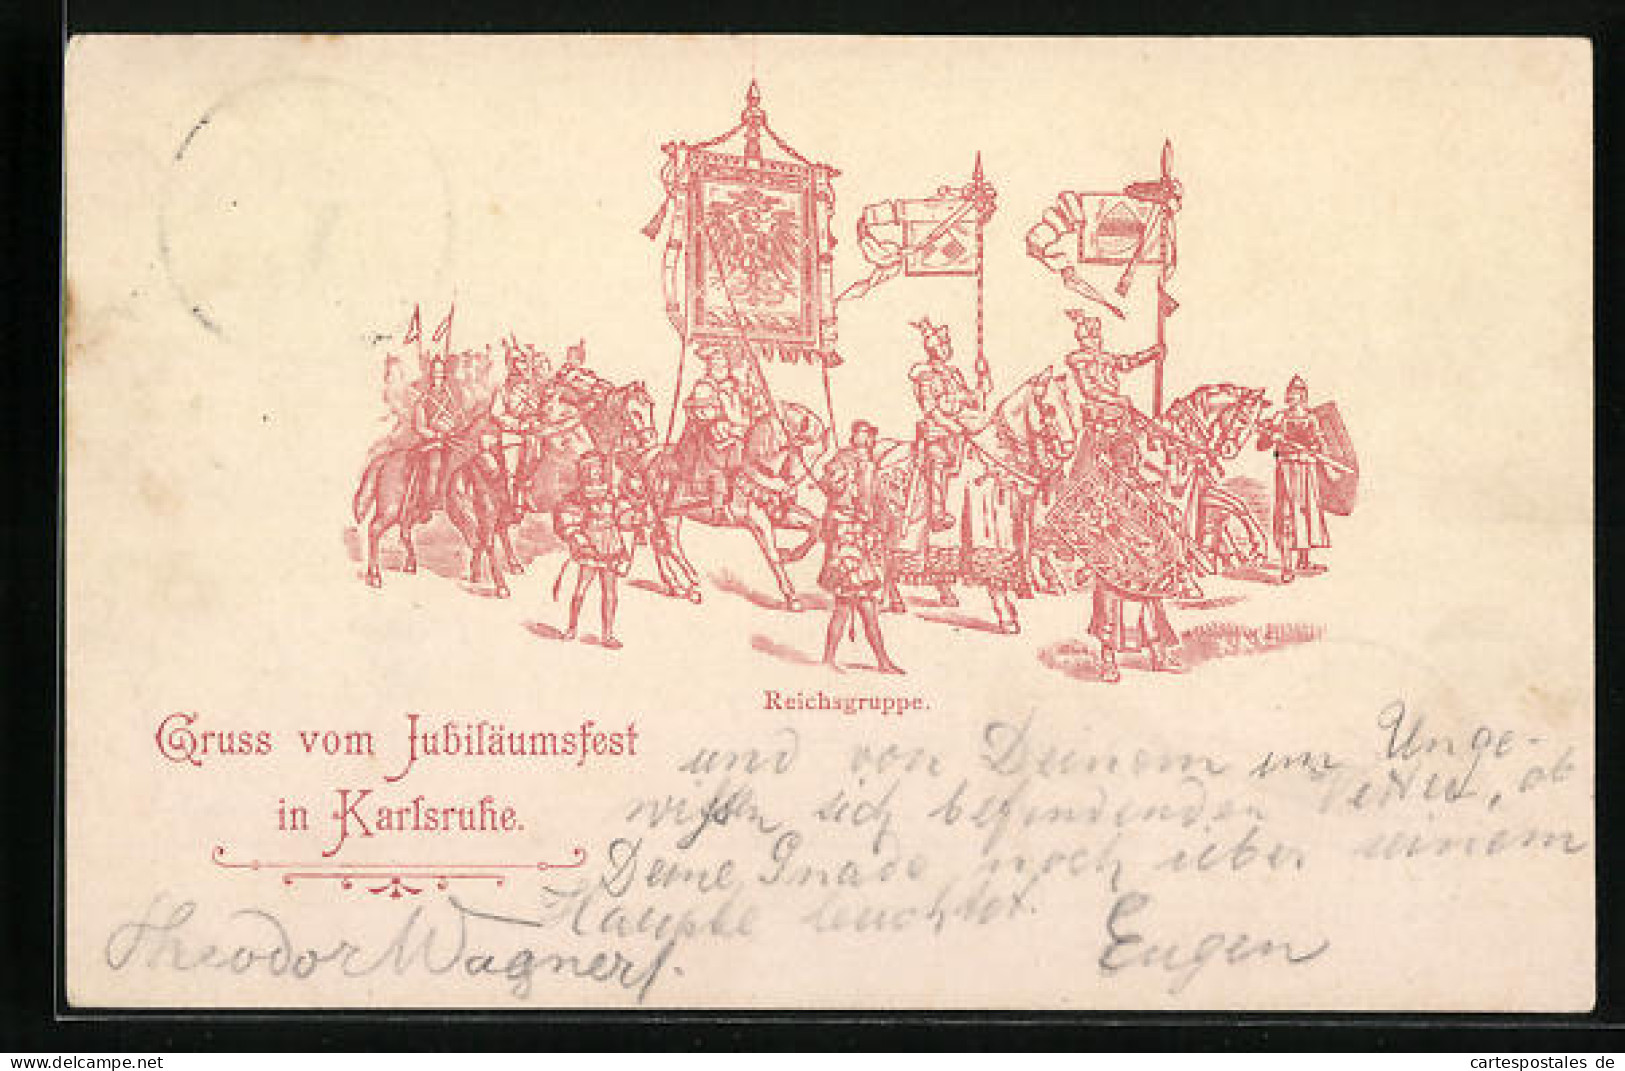 Reichsgruppe.
Gruss vom Jubiläumsfest
in Karlsruhe.
und von Deinem im Unge-
wissen sich befindenden Vetter, ob
Deine Gnade noch über seinem
Haupte leuchtet.
Eugen
Theodor Wagner
therealthing.com cartespostales de